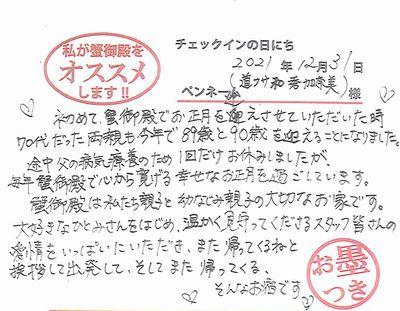 私が蟹御殿を
オススメ
します!!
チェックインの日にち
2021年12月31日
ペンネーム(道フサ和秀加奈美)様
初めて、蟹御殿でお正月を迎えさせていただいた時
70代だった両親も今年で89歳と90歳を迎えることになりました。
途中父の病気療養のため1回だけお休みしましたが、
毎年蟹御殿で心から寛げる幸せなお正月を過ごしています。
蟹御殿は私たち親子と幼なじみ親子の大切なお家です。
大好きなひとみさんをはじめ、温かく見守ってくださるスタッフ皆さんの
愛情をいっぱいにいただき、また帰ってくるねと
挨拶して出発して、そしてまた帰ってくる、
そんなお宿です
お墨つき